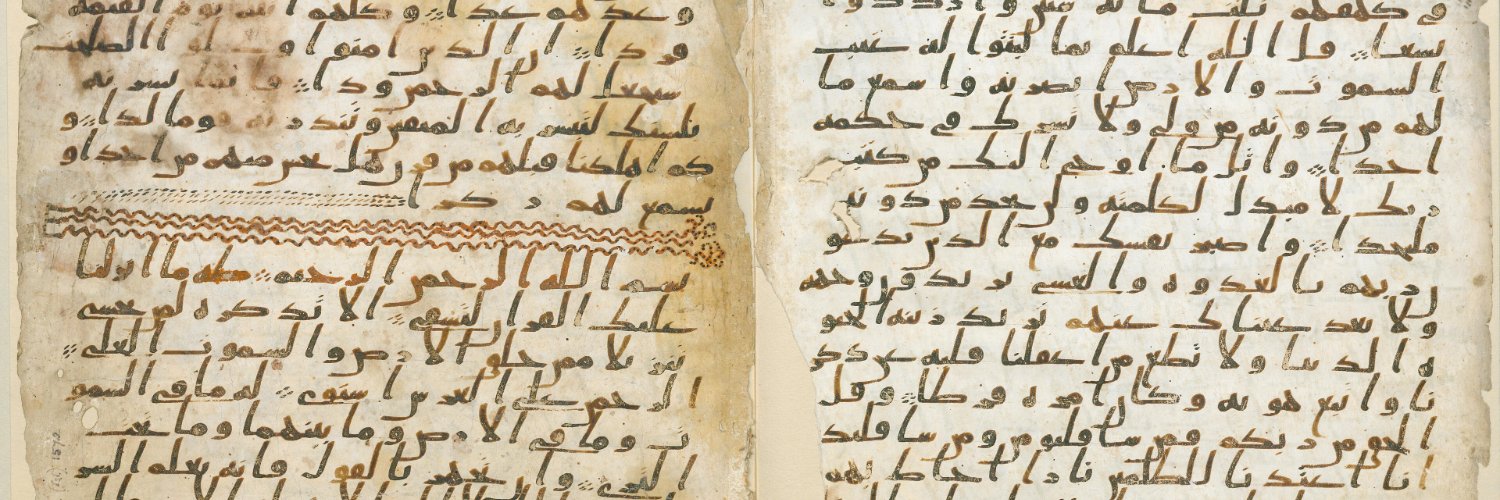 في كهفهم ثلث مائة سنين وازدادوا
تسعا قل الله اعلم بما لبثوا له غيب
السموت والارض ابصر به واسمع ما
لهم من دونه من ولي ولا يشرك في حكمه
احدا واتل ما اوحي اليك من كتب
ربك لا مبدل لكلمته ولن تجد من دونه
ملتحدا واصبر نفسك مع الذين يدعو
ن ربهم بالغدوة والعشي يريدون وجهه
ولا تعد عيناك عنهم تريد زينة الحيو
ة الدنيا ولا تطع من اغفلنا قلبه عن ذكر
نا واتبع هويه وكان امره فرطا وقل
الحق من ربكم فمن شا فليومن ومن شا فليكفر
انا اعتدنا للظلمين نارا احاط بهم
وعدهم عدا وكلهم اتيه يوم القيمة
فردا ان الذين امنوا وعملوا الصلحت
سيجعل لهم الرحمن ودا فانما يسرنه
بلسنك لتبشر به المتقين وتنذر به قوما لدا و
كم اهلكنا قبلهم من قرن هل تحس منهم من احد او
تسمع لهم ركزا
بسم الله الرحمن الرحيم طه ما انزلنا
عليك القران لتشقى الا تذكرة لمن يخشى
تنزيلا ممن خلق الارض والسموت العلى
الرحمن على العرش استوى له ما في السمو
ت وما في الارض وما بينهما وما تحت
الثرى وان تجهر بالقول فانه يعلم السر